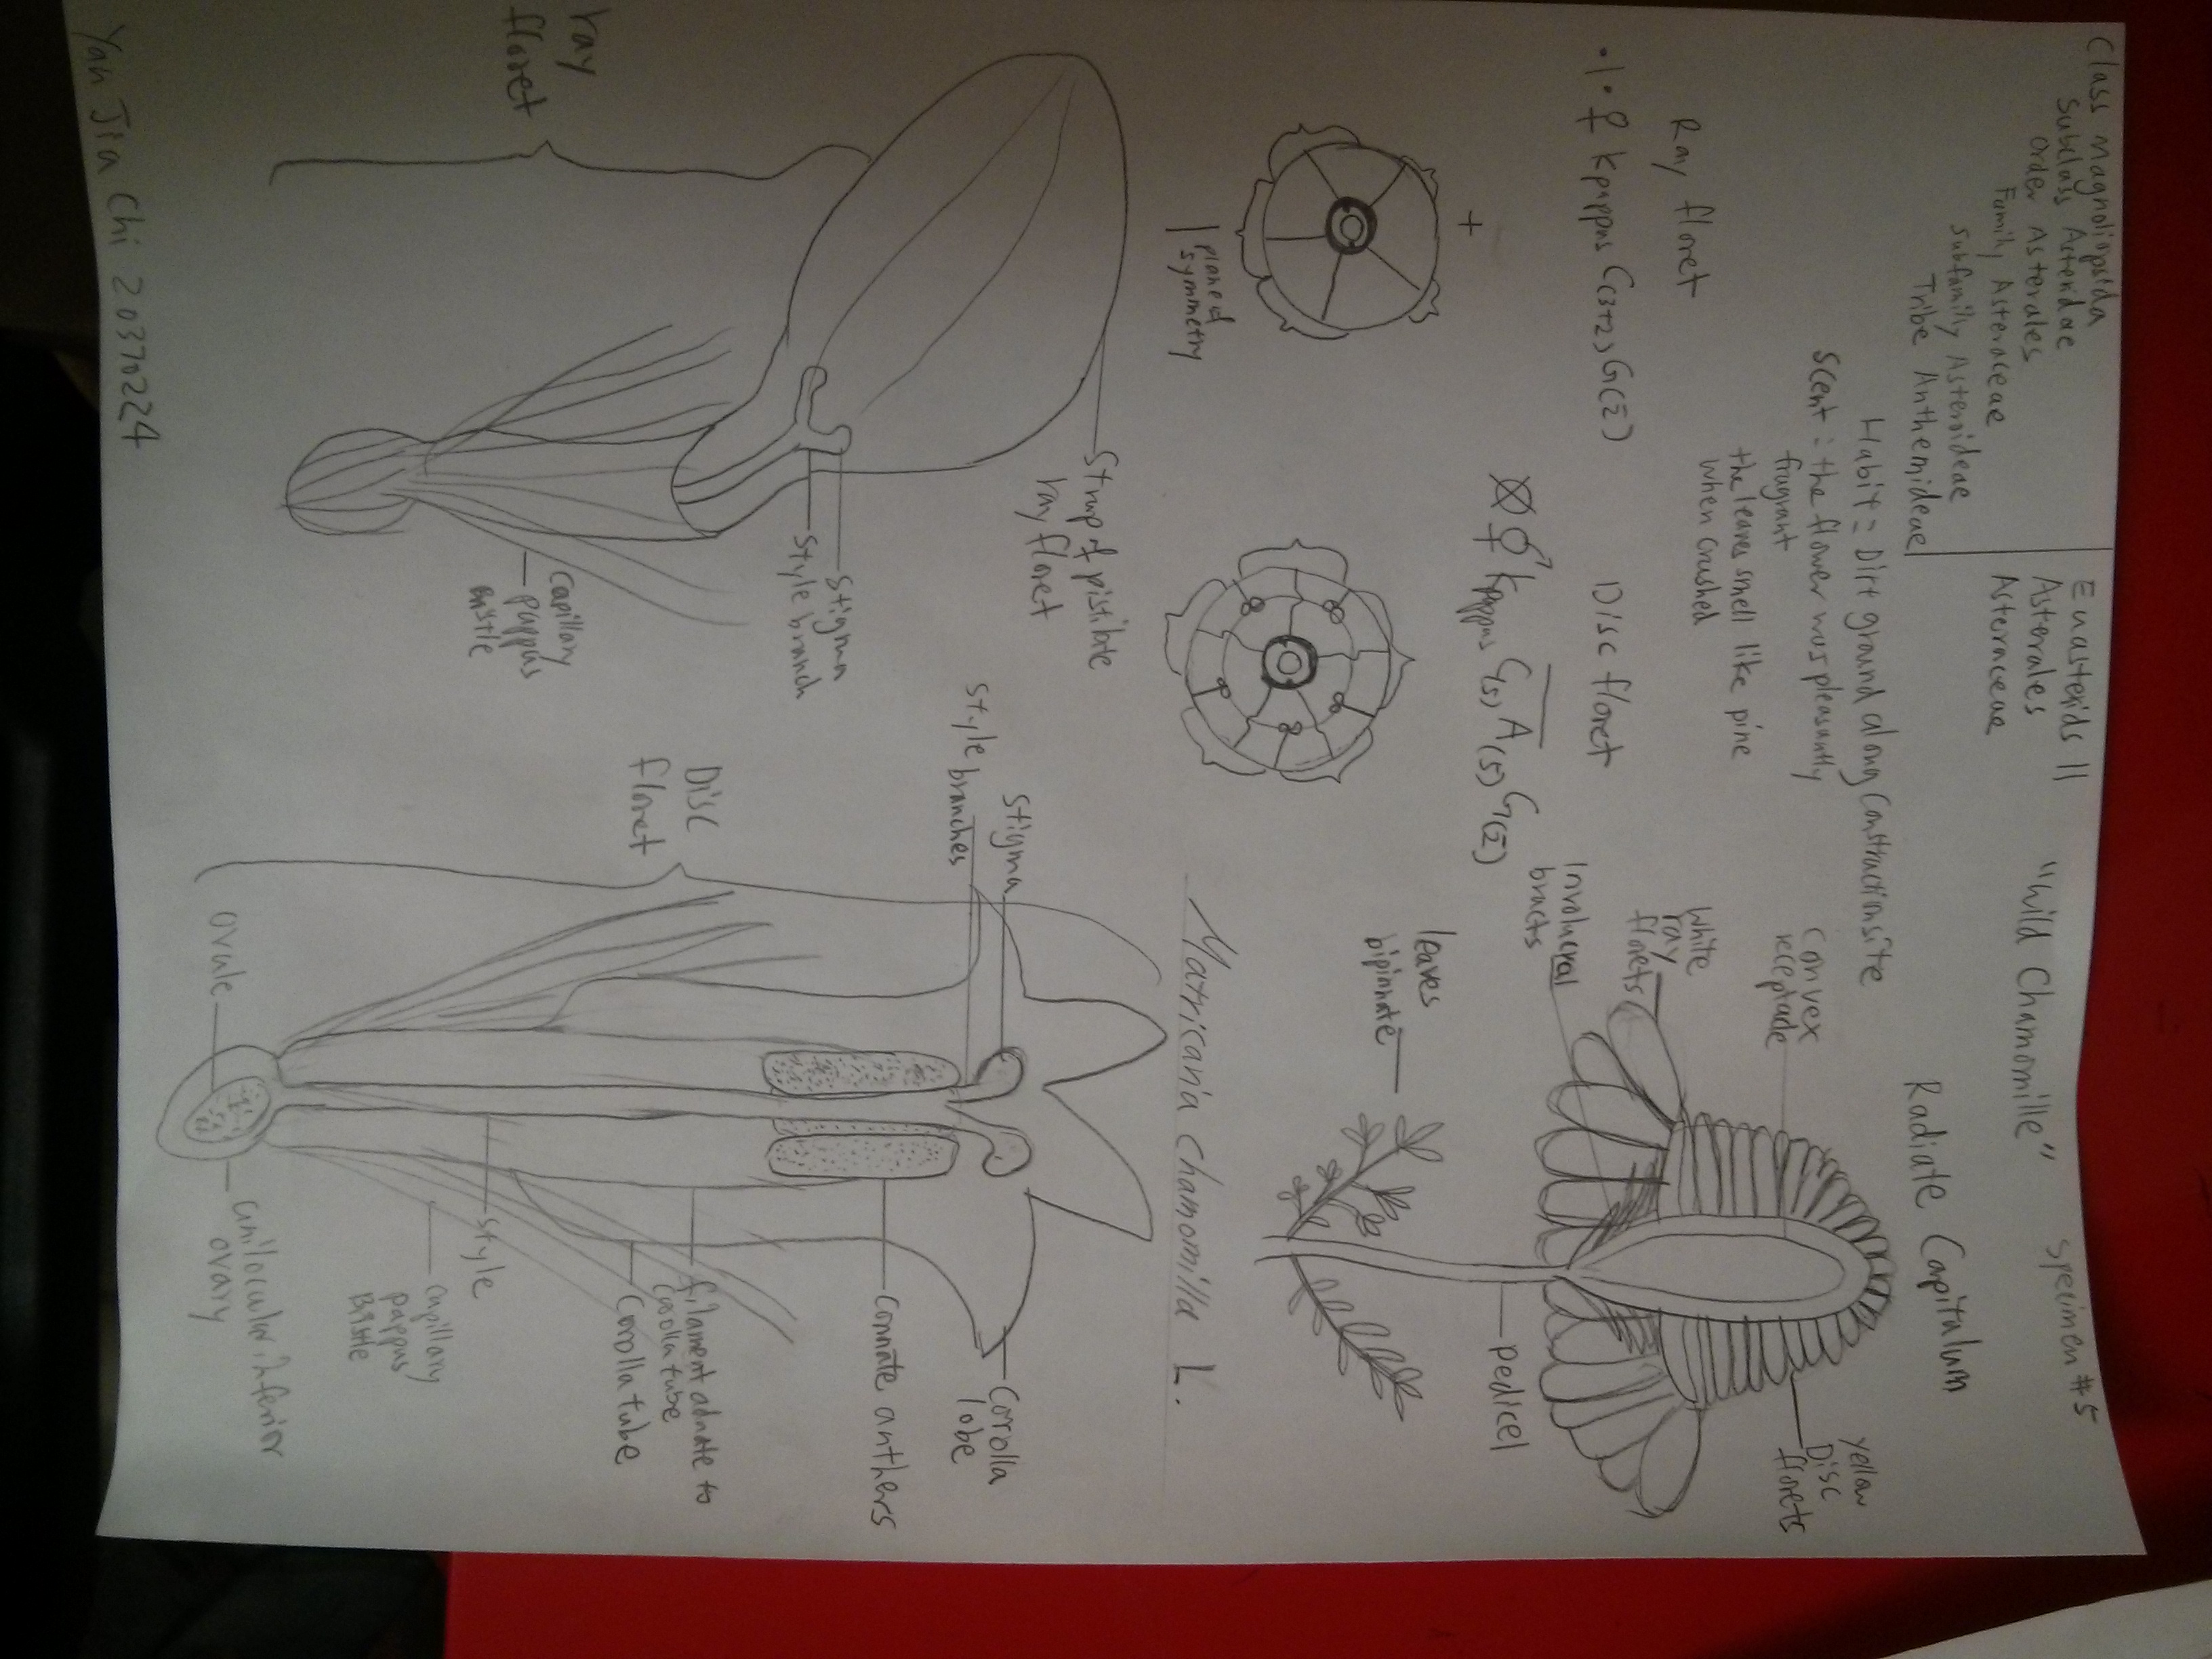 Class Magnoliopsida
Subclass Asteridae
Order Asterales
Family Asteraceae
Subfamily Asterideae
Tribe Anthemideae
Euasterids II
Asterales
Asteraceae
"Wild Chamomille"
Specimen #5
Habit = Dirt ground along Constructionsite
Scent : the flower was pleasantly
fragrant
the leaves smell like pine
when crushed
Radiate Capitulum
Convex
receptacle
White
ray
florets
Involucral
bracts
Yellow
Disc
florets
leaves
bipinnate
pedicel
Ray floret
·|· ♀ Kpappus C(3+2) G(2)
+
plane of
symmetry
Disc floret
⚥ Kpappus C(5) A(5) G(2)
Matricaria chamomilla L.
Strap of pistilate
ray floret
Stigma
Style branch
Capillary
pappus
Bristle
ray
floret
Stigma
Style branches
Disc
floret
Corolla
lobe
Connate anthers
filament adnate to
Corolla tube
Corolla tube
Style
Capillary
pappus
Bristle
Ovule
Unilocular inferior
ovary
Yan Jia Chi 20370224